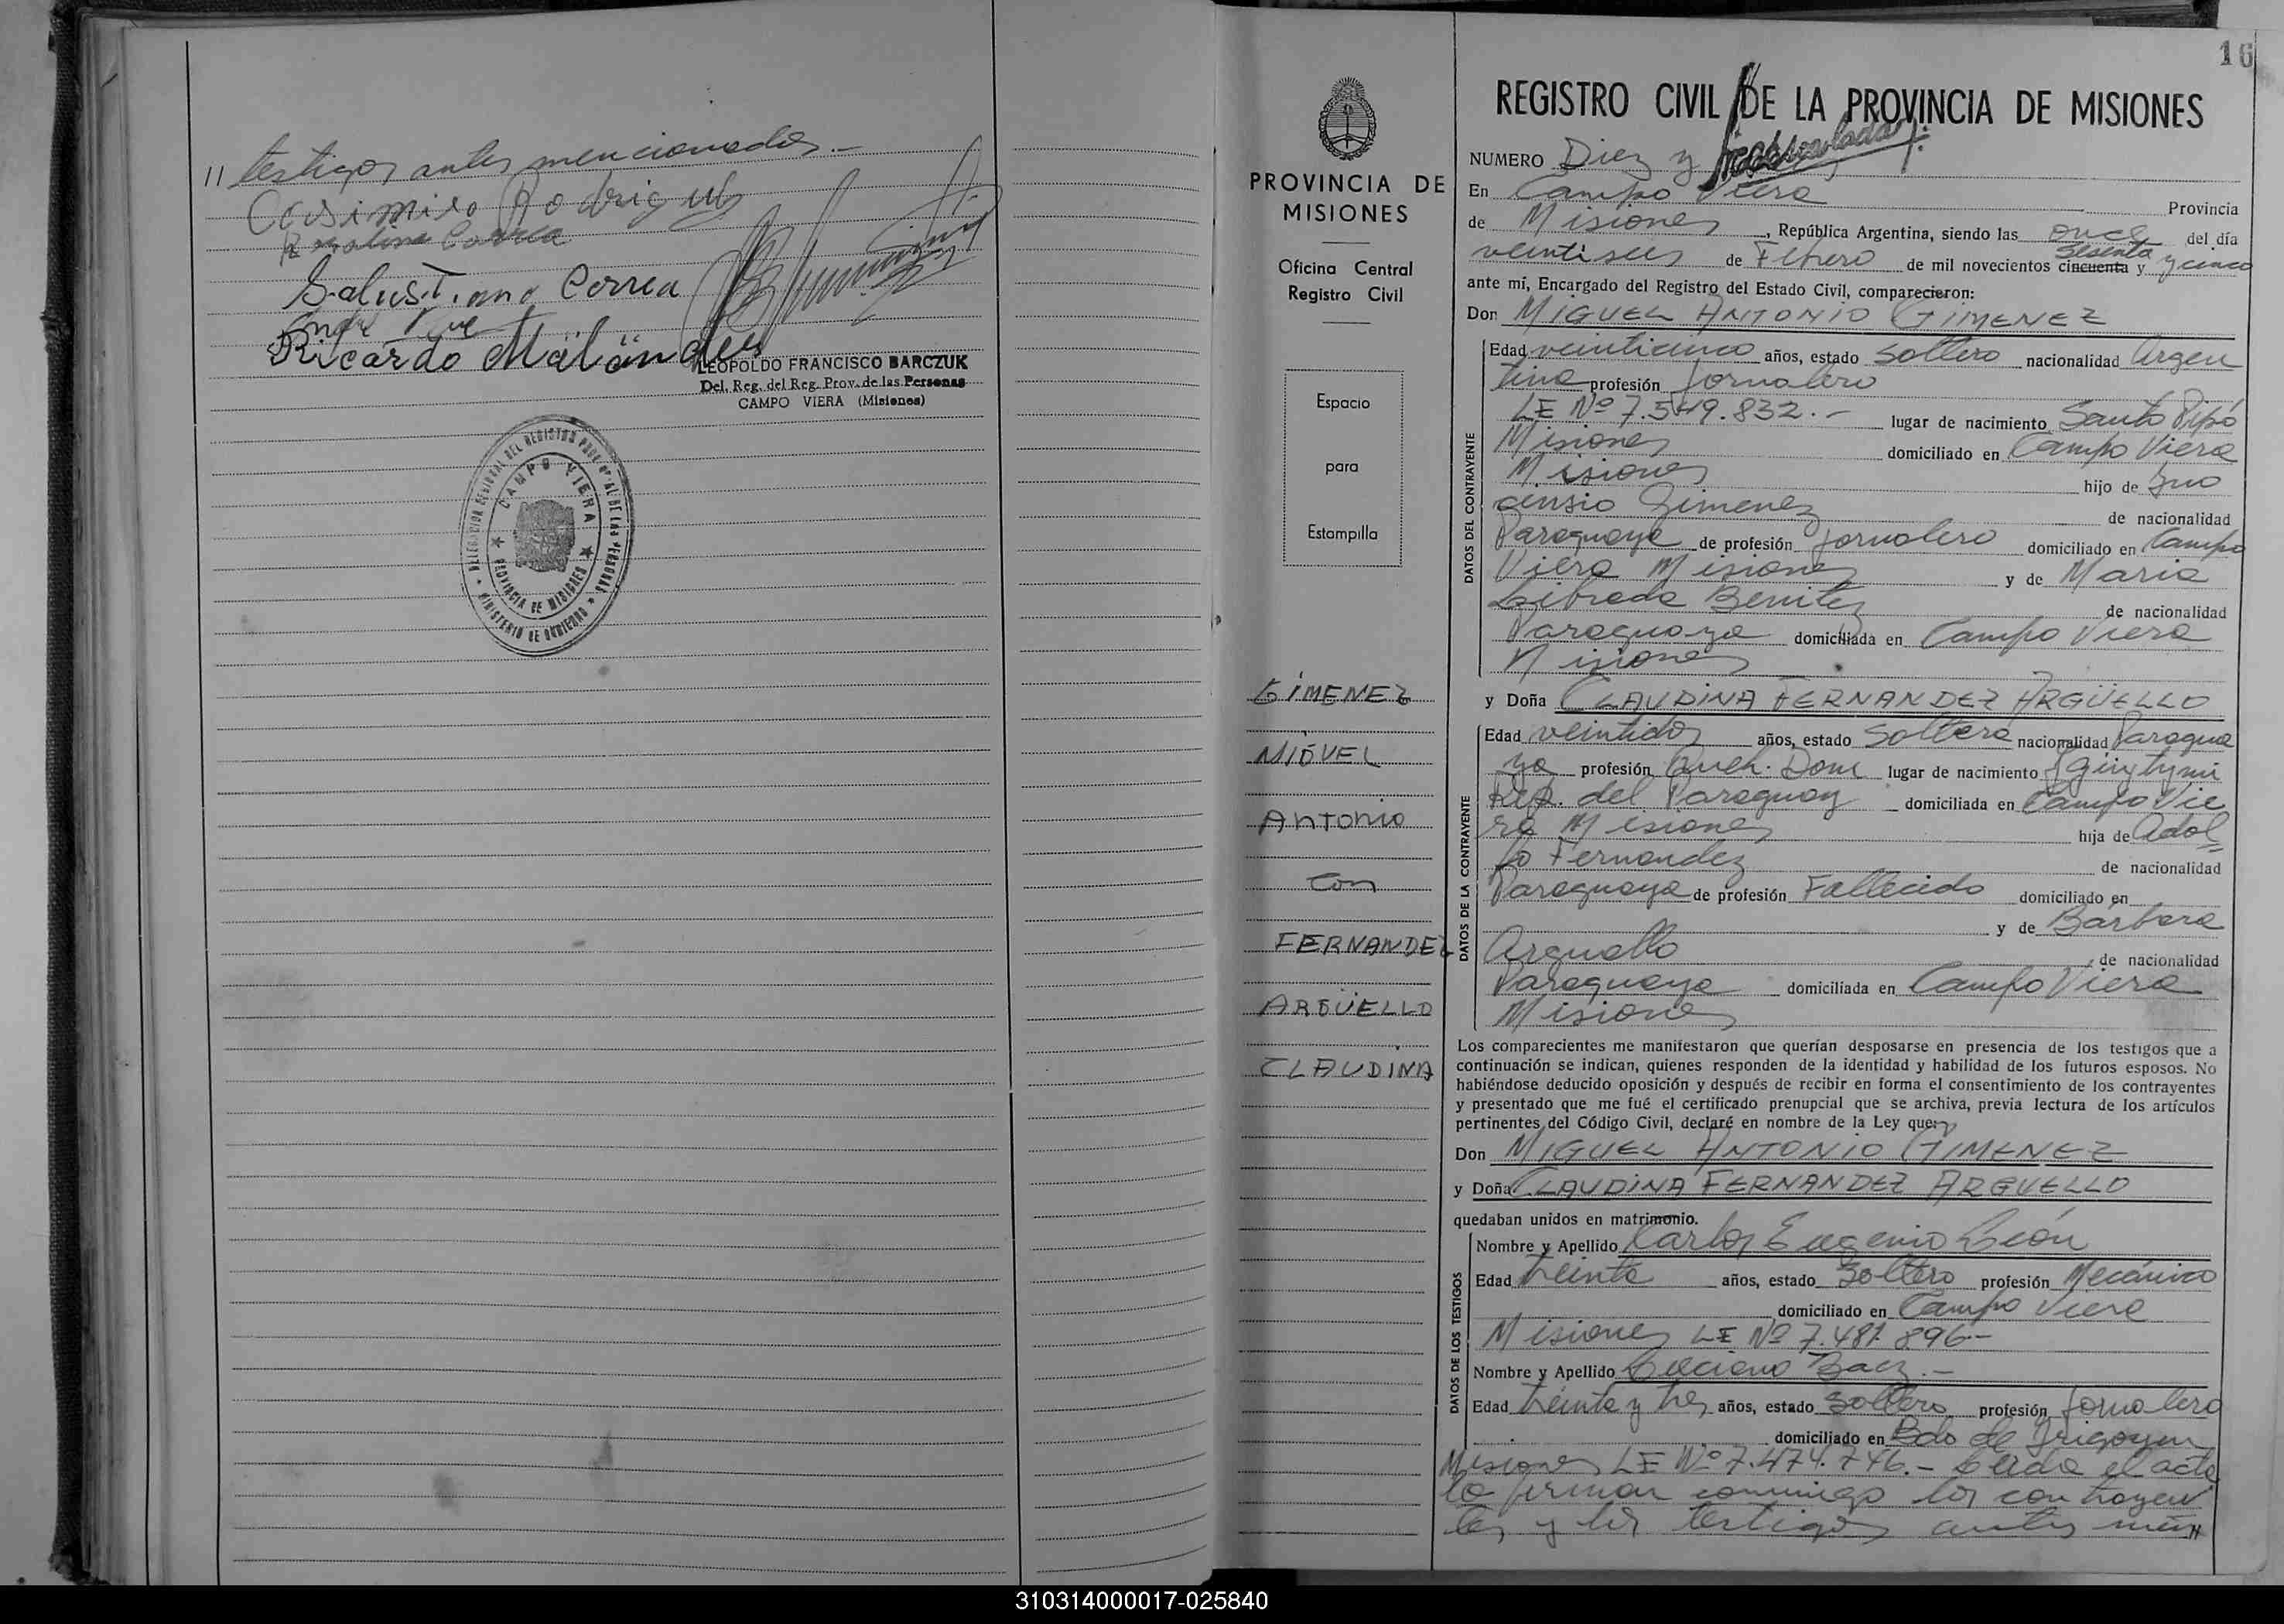 // testigos antes mencionados.-
Casimiro Rodriguez
Rosalina Correa
Salustiano Correa
Ricardo Malánder
LEOPOLDO FRANCISCO BARCZUK
Del. Reg. del Reg. Prov. de las Personas
CAMPO VIERA (Misiones)
DELEGACION REGIONAL DEL REGISTRO PROVINCIAL DE LAS PERSONAS
CAMPO VIERA
PROVINCIA DE MISIONES
MINISTERIO DE GOBIERNO
PROVINCIA DE
MISIONES
Oficina Central
Registro Civil
Espacio
para
Estampilla
GIMENEZ
MIGUEL
ANTONIO
con
FERNANDEZ
ARGÜELLO
CLAUDINA
16
REGISTRO CIVIL DE LA PROVINCIA DE MISIONES
NUMERO Diez y
En Campo Viera Provincia
de Misiones, República Argentina, siendo las once del día
veintiseis de Febrero de mil novecientos cincuenta y sesenta y cinco
ante mí, Encargado del Registro del Estado Civil, comparecieron:
Don MIGUEL ANTONIO GIMENEZ
DATOS DEL CONTRAYENTE
Edad veinticinco años, estado soltero nacionalidad Argen
tina profesión Jornalero
LE Nº 7.549.832.- lugar de nacimiento Santo Pipó
Misiones domiciliado en Campo Viera
Misiones hijo de Ino
censio Gimenez de nacionalidad
Paraguaya de profesión Jornalero domiciliado en Campo
Viera Misiones y de Maria
Librada Benitez de nacionalidad
Paraguaya domiciliada en Campo Viera
Misiones
y Doña CLAUDINA FERNANDEZ ARGÜELLO
DATOS DE LA CONTRAYENTE
Edad veintidos años, estado Soltera nacionalidad Paragua
ya profesión Queh. Dom lugar de nacimiento
Rep. del Paraguay domiciliada en Campo Vie
ra Misiones hija de Adol
fo Fernandez de nacionalidad
Paraguaya de profesión Fallecido domiciliado en
y de Bárbara
Arguello de nacionalidad
Paraguaya domiciliada en Campo Viera
Misiones
Los comparecientes me manifestaron que querían desposarse en presencia de los testigos que a
continuación se indican, quienes responden de la identidad y habilidad de los futuros esposos. No
habiéndose deducido oposición y después de recibir en forma el consentimiento de los contrayentes
y presentado que me fué el certificado prenupcial que se archiva, previa lectura de los artículos
pertinentes del Código Civil, declaré en nombre de la Ley que:
Don MIGUEL ANTONIO GIMENEZ
y Doña CLAUDINA FERNANDEZ ARGUELLO
quedaban unidos en matrimonio.
DATOS DE LOS TESTIGOS
Nombre y Apellido Carlos Eugenio León
Edad treinta años, estado Soltero profesión Mecánico
domiciliado en Campo Viera
Misiones LE Nº 7.487.896.-
Nombre y Apellido Luciano Baez.-
Edad treinta y tres años, estado Soltero profesión Jornalero
domiciliado en Bdo de Irigoyen
Misiones LE Nº 7.474.746.- Leida el acta
la firman conmigo los contrayen
tes y los testigos antes men//
310314000017-025840